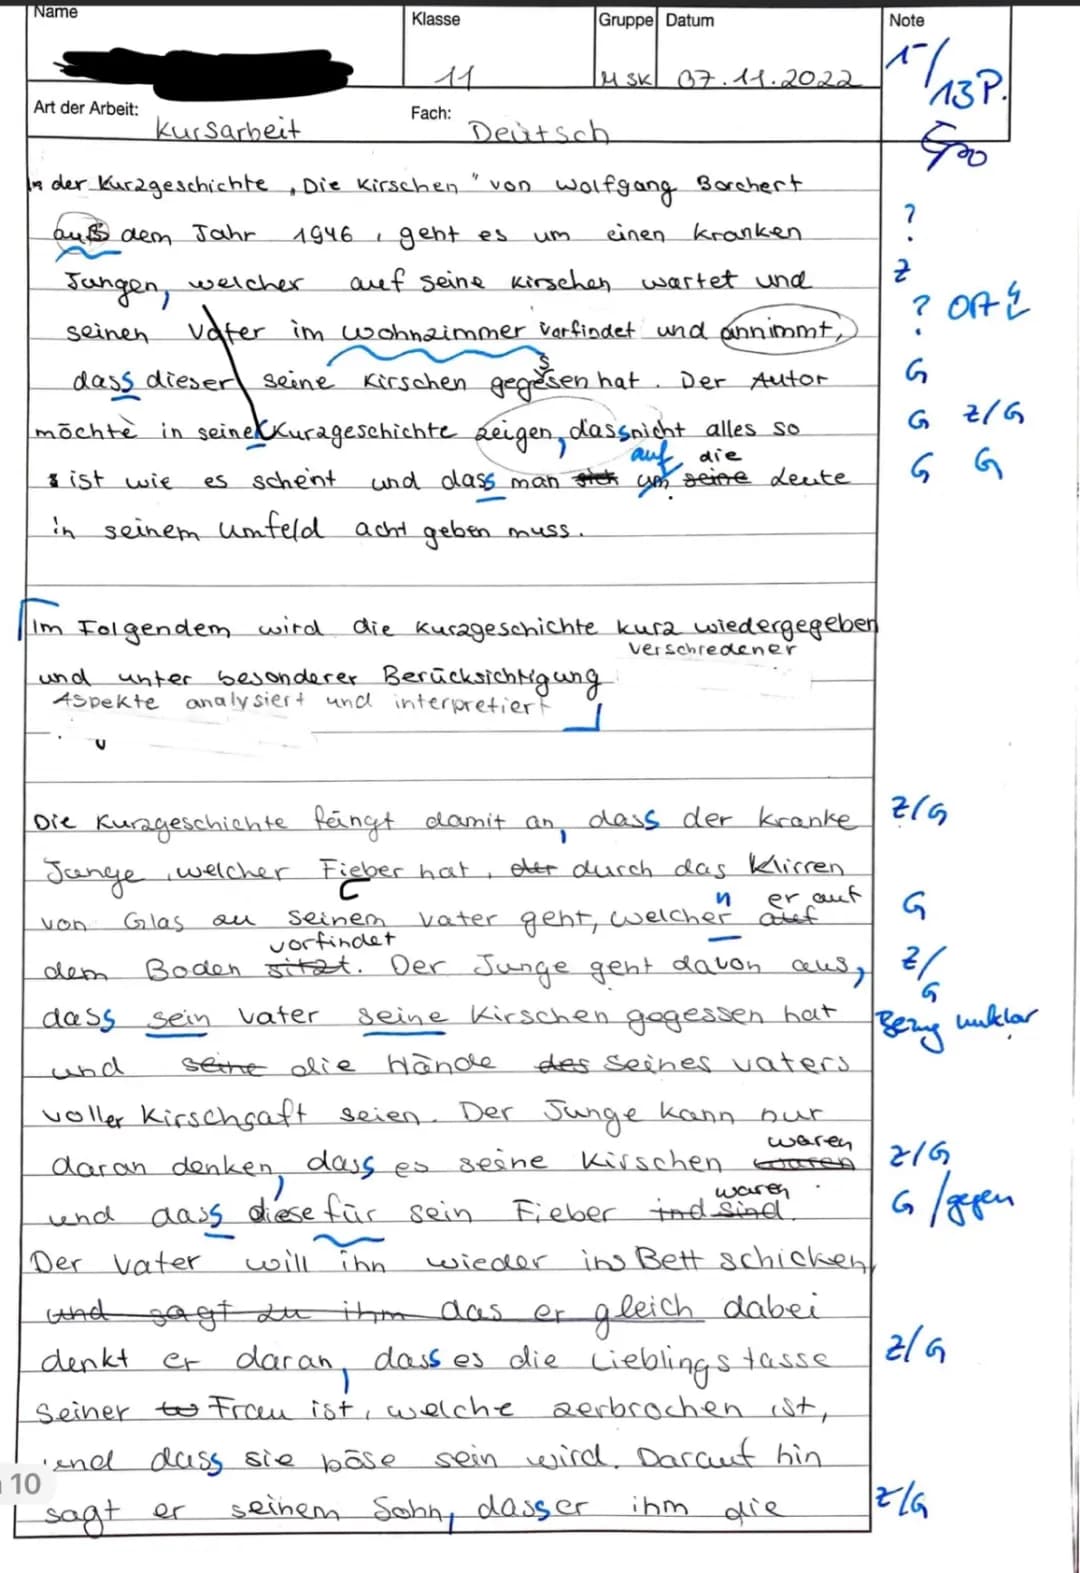 Name Klasse Gruppe Datum Note
11 MSK 07.11.2022 1-/13P.
Art der Arbeit: Kursarbeit Fach: Deutsch
In der Kurzgeschichte „Die Kirschen" von Wolfgang Borchert
aus dem Jahr 1946, geht es um einen kranken ?
Jungen, welcher auf seine Kirschen wartet und Z
seinen Vater im Wohnzimmer vorfindet und annimmt, ? Ort
dass dieser seine Kirschen gegessen hat. Der Autor G
möchte in seiner Kurzgeschichte zeigen, dass nicht alles so G Z/G
auf die
ist wie es scheint und dass man sich um seine Leute G G
in seinem Umfeld acht geben muss.
Im Folgendem wird die Kurzgeschichte kurz wiedergegeben
verschiedener
und unter besonderer Berücksichtigung
Aspekte analysiert und interpretiert
Die Kurzgeschichte fängt damit an, dass der kranke Z/G
Junge, welcher Fieber hat, durch das Klirren
n er auf
von Glas zu seinem Vater geht, welcher auf G
vorfindet
dem Boden sitzt. Der Junge geht davon aus, Z/G
dass sein Vater seine Kirschen gegessen hat Bezug unklar
und seine die Hände des seines Vaters
voller Kirschsaft seien. Der Junge kann nur
waren
daran denken, dass es seine Kirschen waren Z/G
waren
und dass diese für sein Fieber sind. G /gegen
Der Vater will ihn wieder ins Bett schicken,
und sagt zu ihm das er gleich dabei
denkt er daran, dass es die Lieblingstasse Z/G
seiner Frau ist, welche zerbrochen ist,
und dass sie böse sein wird. Darauf hin
10
sagt er seinem Sohn, dass er ihm die Z/G